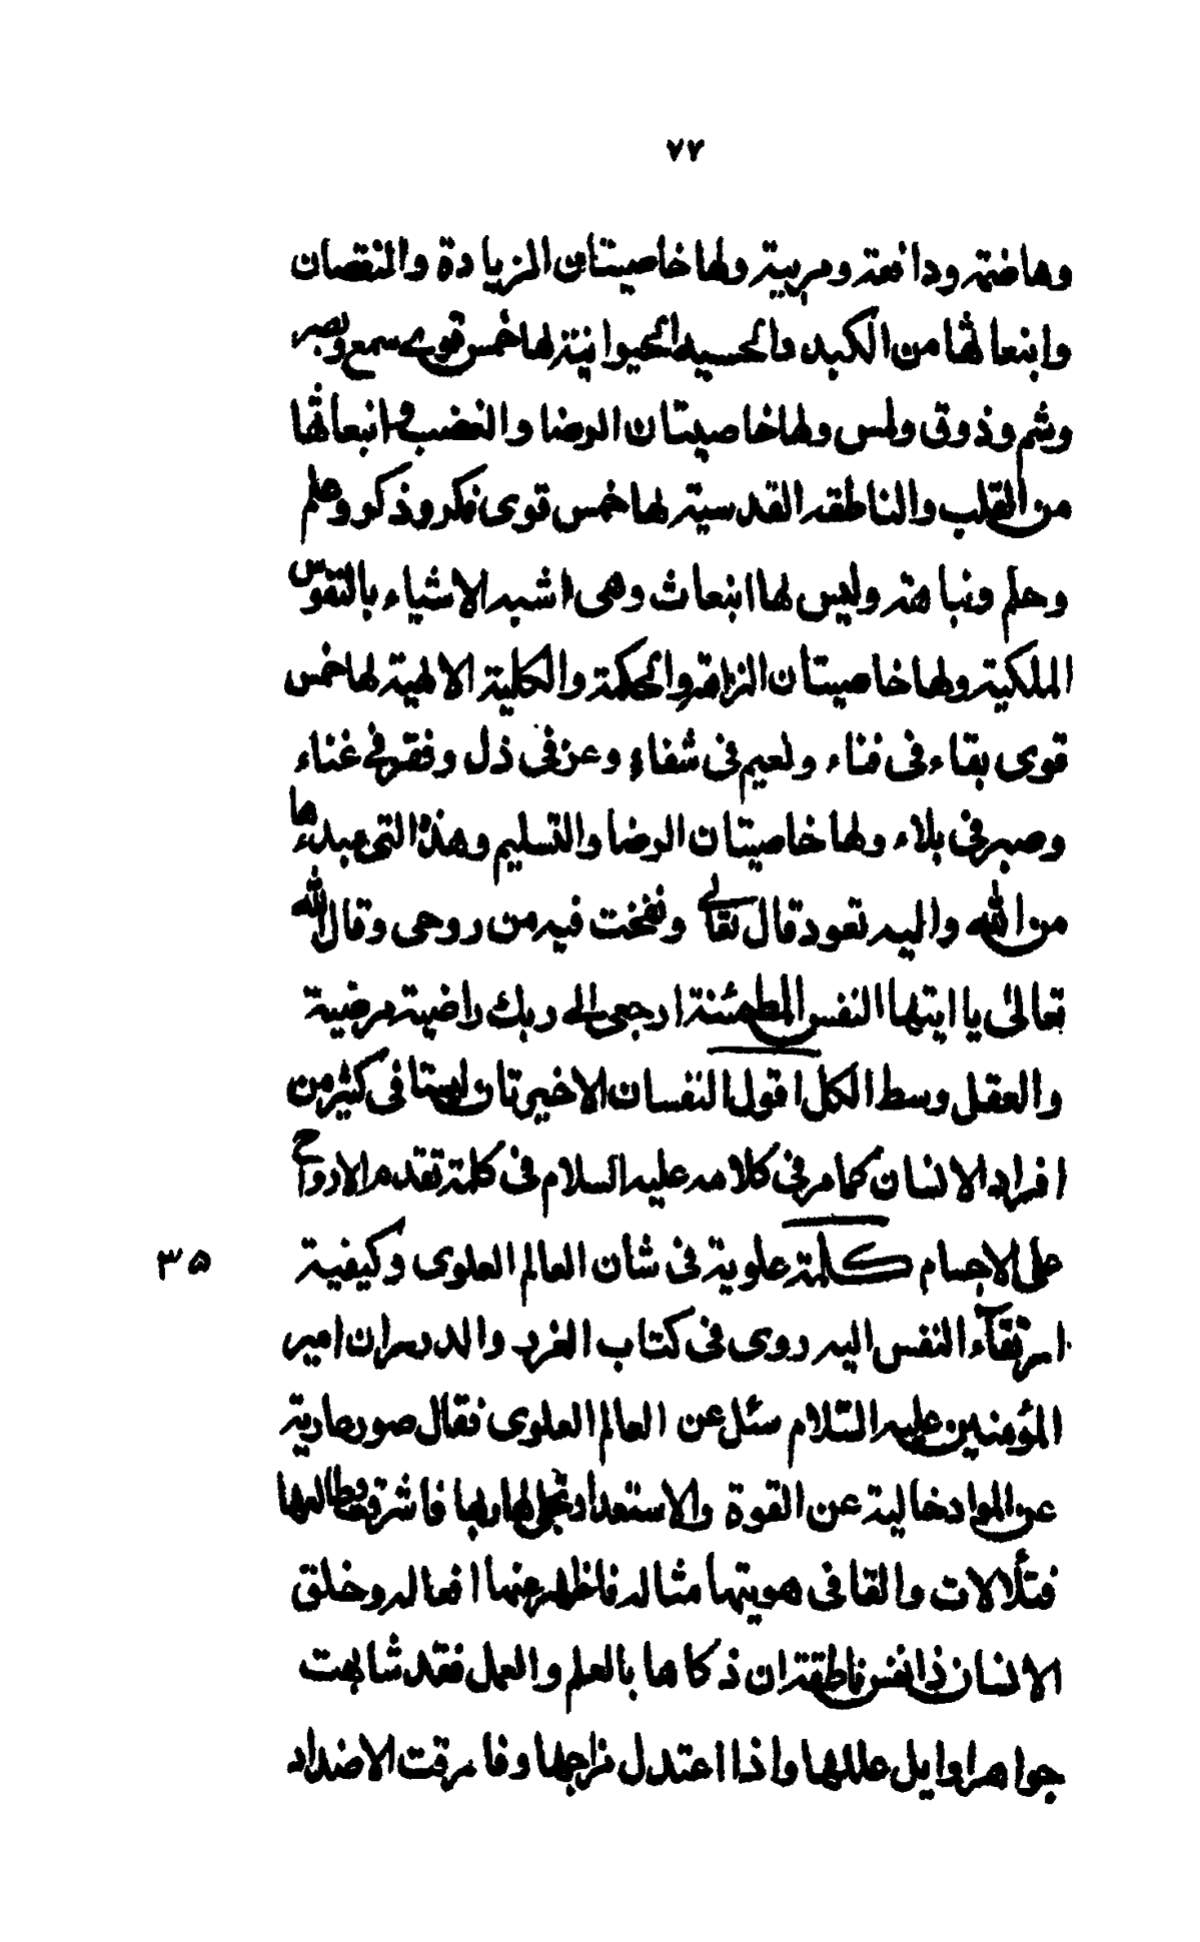 ٧٢
وهاضمة ودافعة ومربية ولها خاصيتان الزيادة والنقصان
وانبعاثها من الكبد والحسيه الحيوانية لها خمس قوى سمع وبصر
وشم وذوق ولمس ولها خاصيتان الرضا والغضب وانبعاثها
من القلب والناطقه القدسية لها خمس قوى فكر وذكر وعلم
وحلم ونباهة وليس لها انبعاث وهى اشبه الاشياء بالنفوس
الملكية ولها خاصيتان النزاهة والحكمة والكلية الالهية لها خمس
قوى بقاء فى فناء ونعيم فى شفاء وعز فى ذل وفقر فى غناء
وصبر فى بلاء ولها خاصيتان الرضا والتسليم وهذه التى مبدءها
من الله واليه تعود قال تعالى ونفخت فيه من روحى وقال الله
تعالى يا ايتها النفس المطمئنة ارجعى الى ربك راضية مرضية
والعقل وسط الكل اقول النفسان الاخيرتان ليستا فى كثير من
افراد الانسان كما مر فى كلامه عليه السلام فى كلمة تقدم الارواح
على الاجسام كلمة علوية فى شان العالم العلوى وكيفية
٣٥
ارتقآء النفس اليه روى فى كتاب الغرر والدرر ان امير
المؤمنين عليه السّلام سئل عن العالم العلوى فقال صور عارية
عن المواد خالية عن القوة والاستعداد تجلى لها ربها فاشرقت وطالعها
فتلألات والقا فى هويتها مثاله فاظهر عنها افعاله وخلق
الانسان ذا نفس ناطقة ان ذكاها بالعلم والعمل فقد شابهت
جواهر اوايل عللها واذا اعتدل مزاجها وفارقت الاضداد